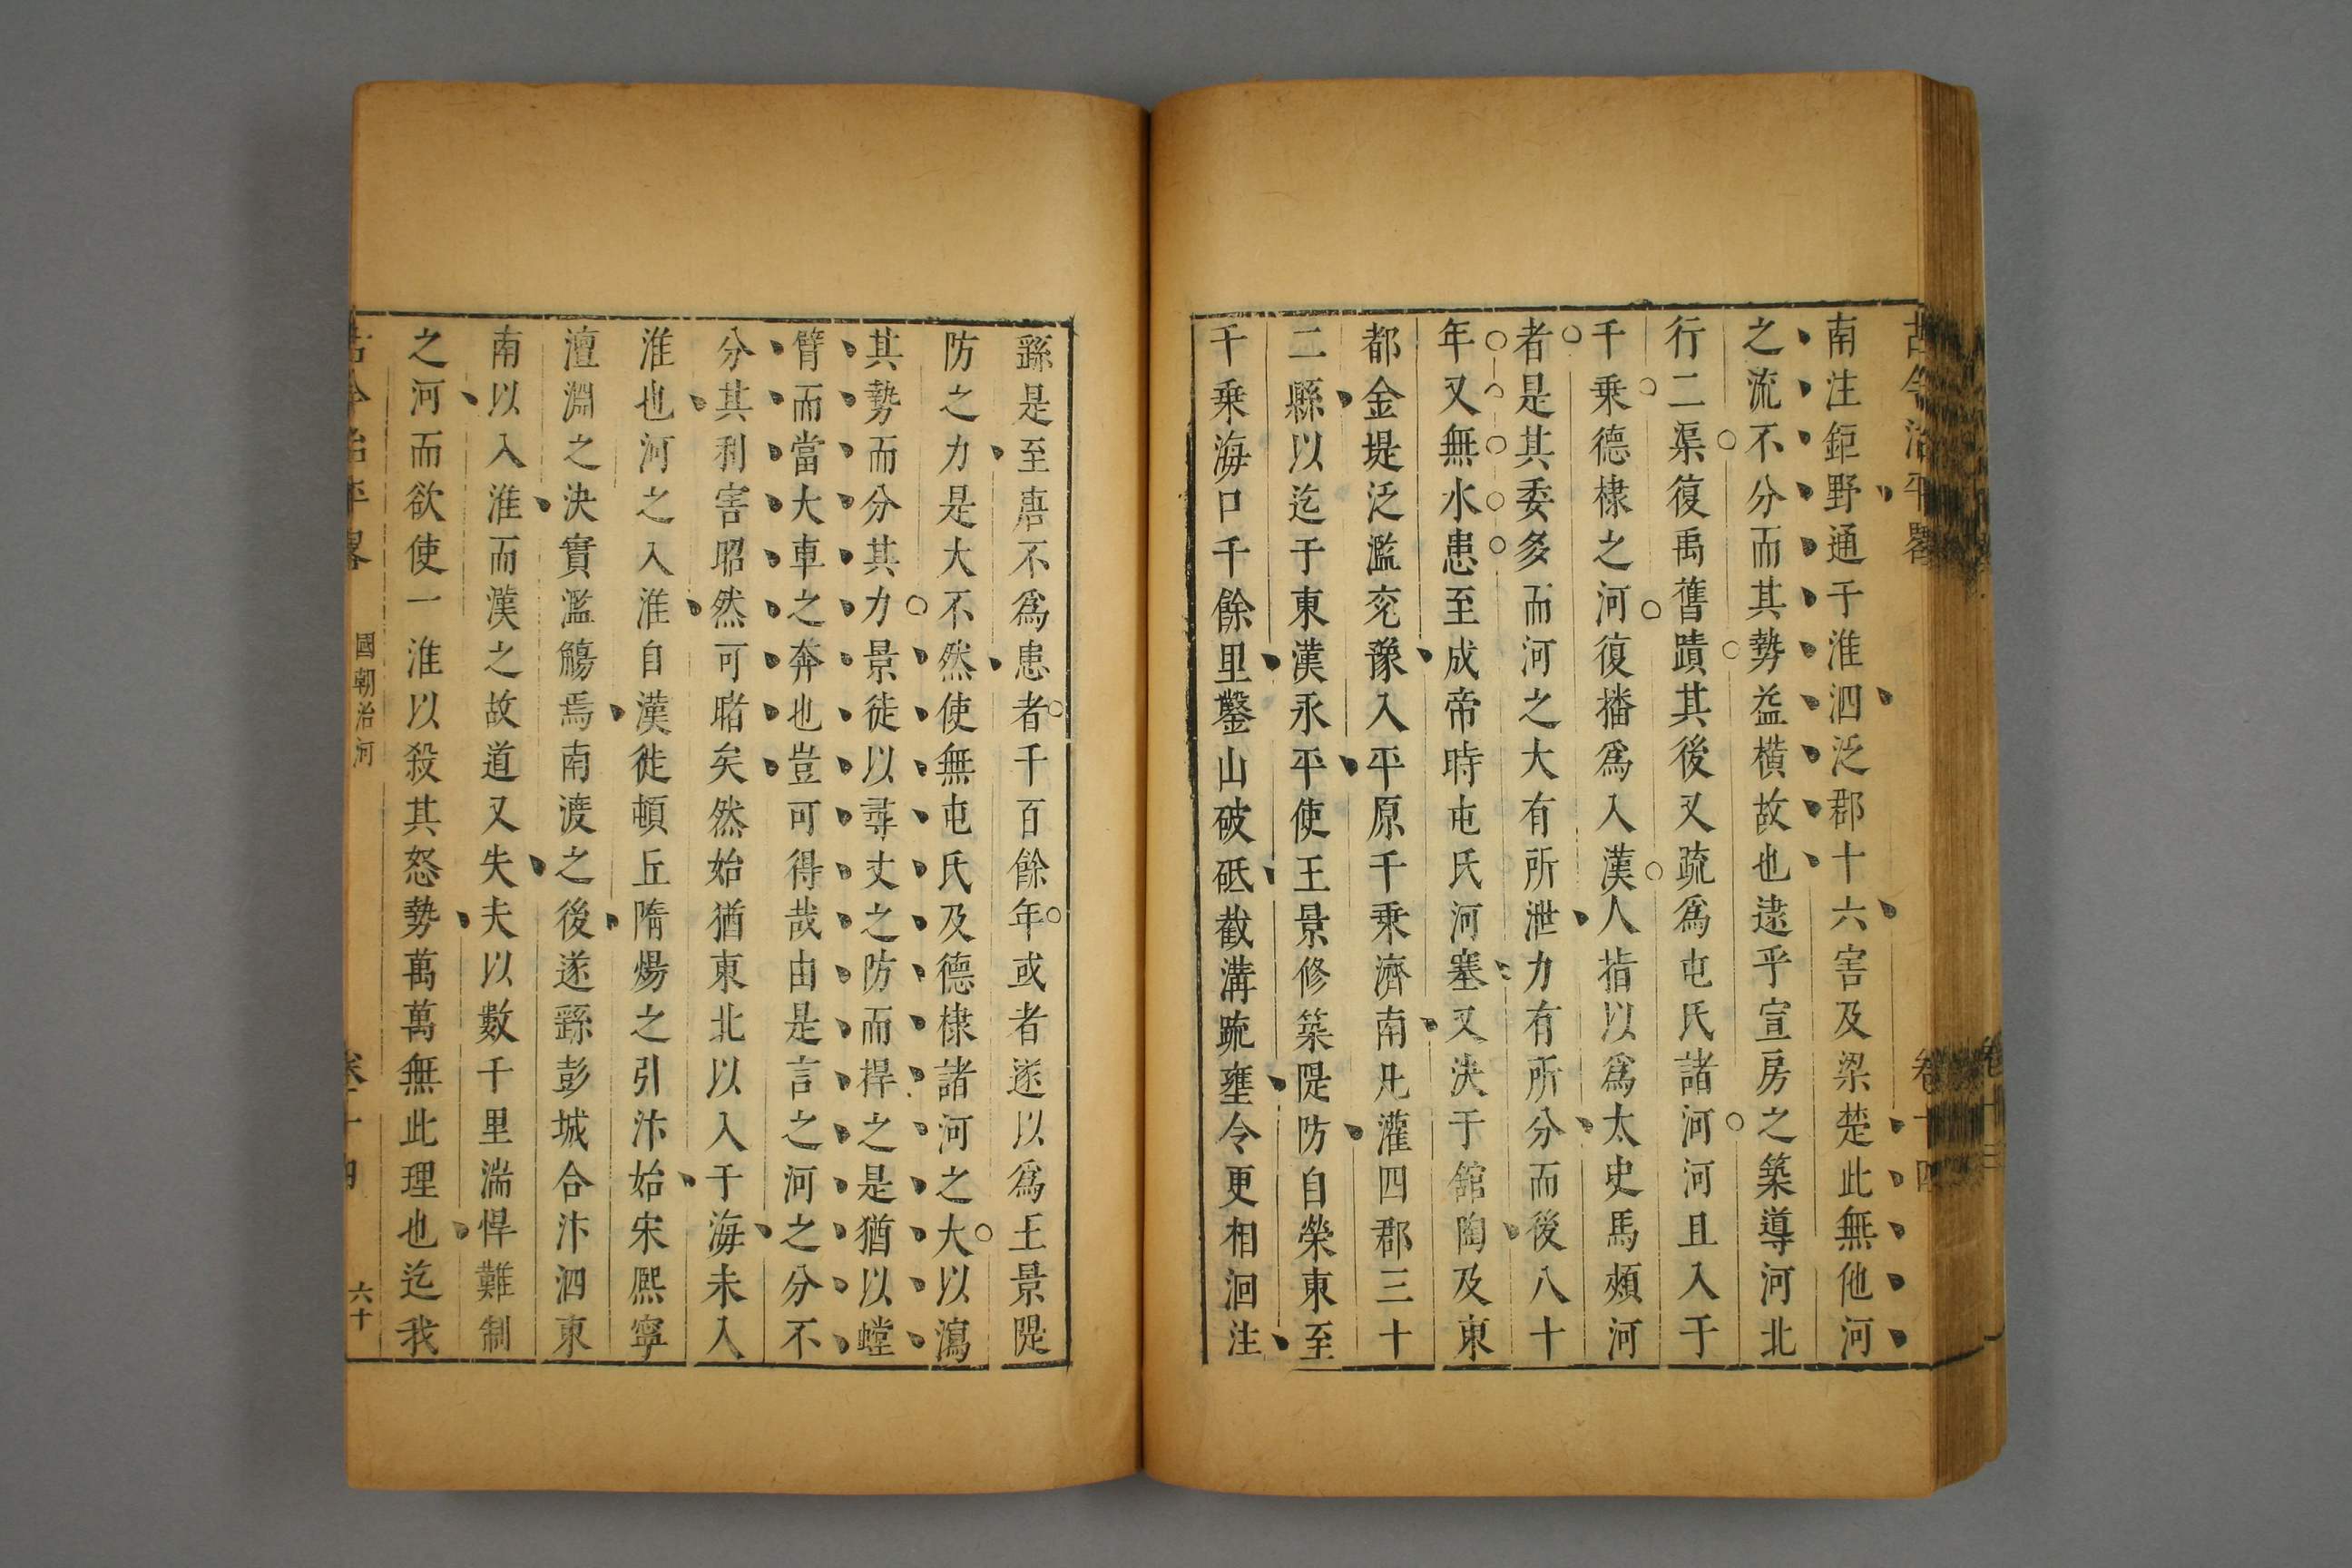 古今治平畧
卷十四
南注鉅野通于淮泗泛郡十六害及梁楚此無他河
之流不分而其勢益橫故也逮乎宣房之築導河北
行二渠復禹舊蹟其後又疏爲屯氏諸河河且入于
千乘德棣之河復播爲八漢人指以爲太史馬頰河
者是其委多而河之大有所泄力有所分而後八十
年又無水患至成帝時屯氏河塞又决于舘陶及東
都金堤泛濫兖豫入平原千乘濟南凡灌四郡三十
二縣以迄于東漢永平使王景修築隄防自榮東至
千乘海口千餘里鑿山破砥截溝疏壅令更相洄注
繇是至唐不爲患者千百餘年或者遂以爲王景隄
防之力是大不然使無屯氏及德棣諸河之大以瀉
其勢而分其力景徒以尋丈之防而捍之是猶以螳
臂而當大車之奔也豈可得哉由是言之河之分不
分其利害昭然可睹矣然始猶東北以入于海未入
淮也河之入淮自漢徙頓丘隋煬之引汴始宋熈寧
澶淵之決實濫觴焉南渡之後遂繇彭城合汴泗東
南以入淮而漢之故道又失夫以數千里湍悍難制
之河而欲使一淮以殺其怒勢萬萬無此理也迄我
古今治平畧
國朝治河
卷十四
六十